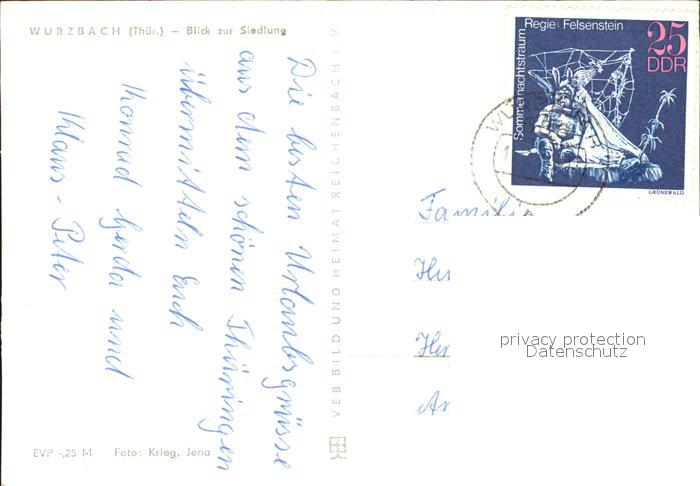 WURZBACH (Thür.) — Blick zur Siedlung
Die besten Urlaubsgrüsse
aus dem schönen Thüringen
übermitteln Euch
Konrad Gerda und
Klaus-Peter
EVP -,25 M Foto: Krieg, Jena
VEB BILD UND HEIMAT REICHENBACH i. V.
Regie: Felsenstein
Sommernachtstraum
25
DDR
GRÜNEWALD
Familie
privacy protection
Datenschutz